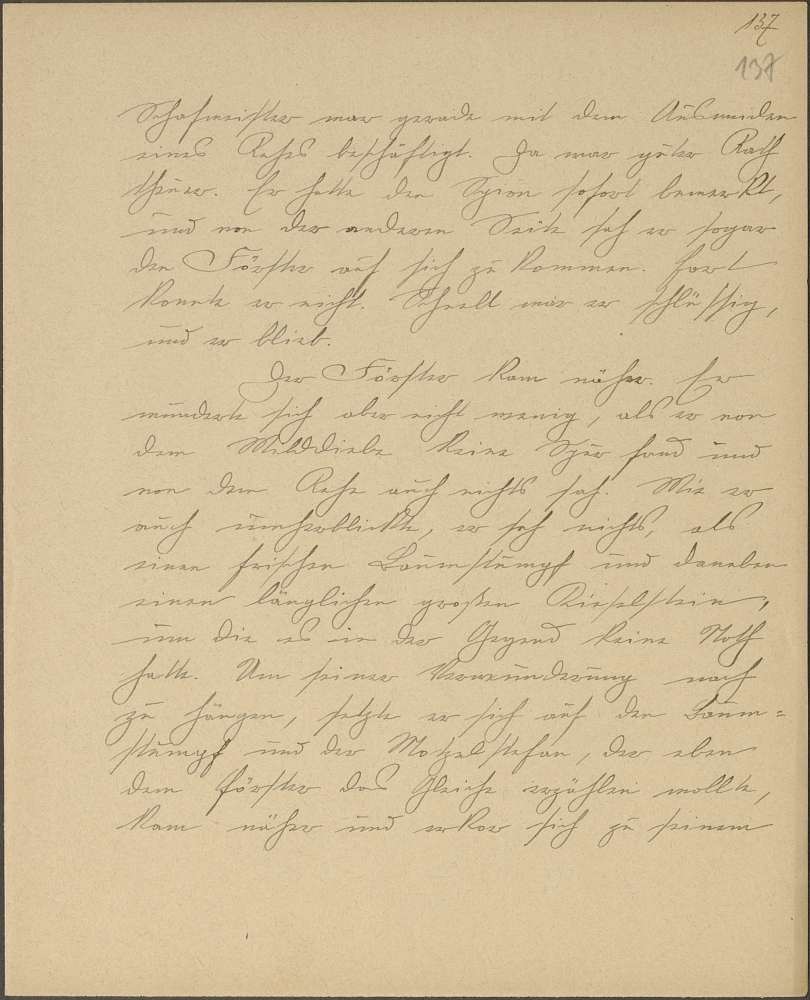 137
137
Schafmeister war gerade mit dem Ausweiden
eines Rehes beschäftigt. Da war guter Rath
theuer. Er hatte den Spion sofort bemerkt,
und von der anderen Seite sah er sogar
den Förster auf sich zu kommen. Fort
konnte er nicht. Schnell war er schlüssig,
und er blieb.
Der Förster kam näher. Er
wunderte sich aber nicht wenig, als er von
dem Wilddiebe keine Spur fand und
von dem Rehe auch nichts sah. Wie er
auch umherblickte, er sah nichts, als
einen frischen Baumstumpf und daneben
einen länglichen großen Kieselstein,
um die es in der Gegend keine Noth
hatte. Um seiner Verwunderung nach
zu hängen, setzte er sich auf den Baum=
stumpf und der Motzelstefan, der eben
dem Förster das Gleiche erzählen wollte,
kam näher und erkor sich zu seinem